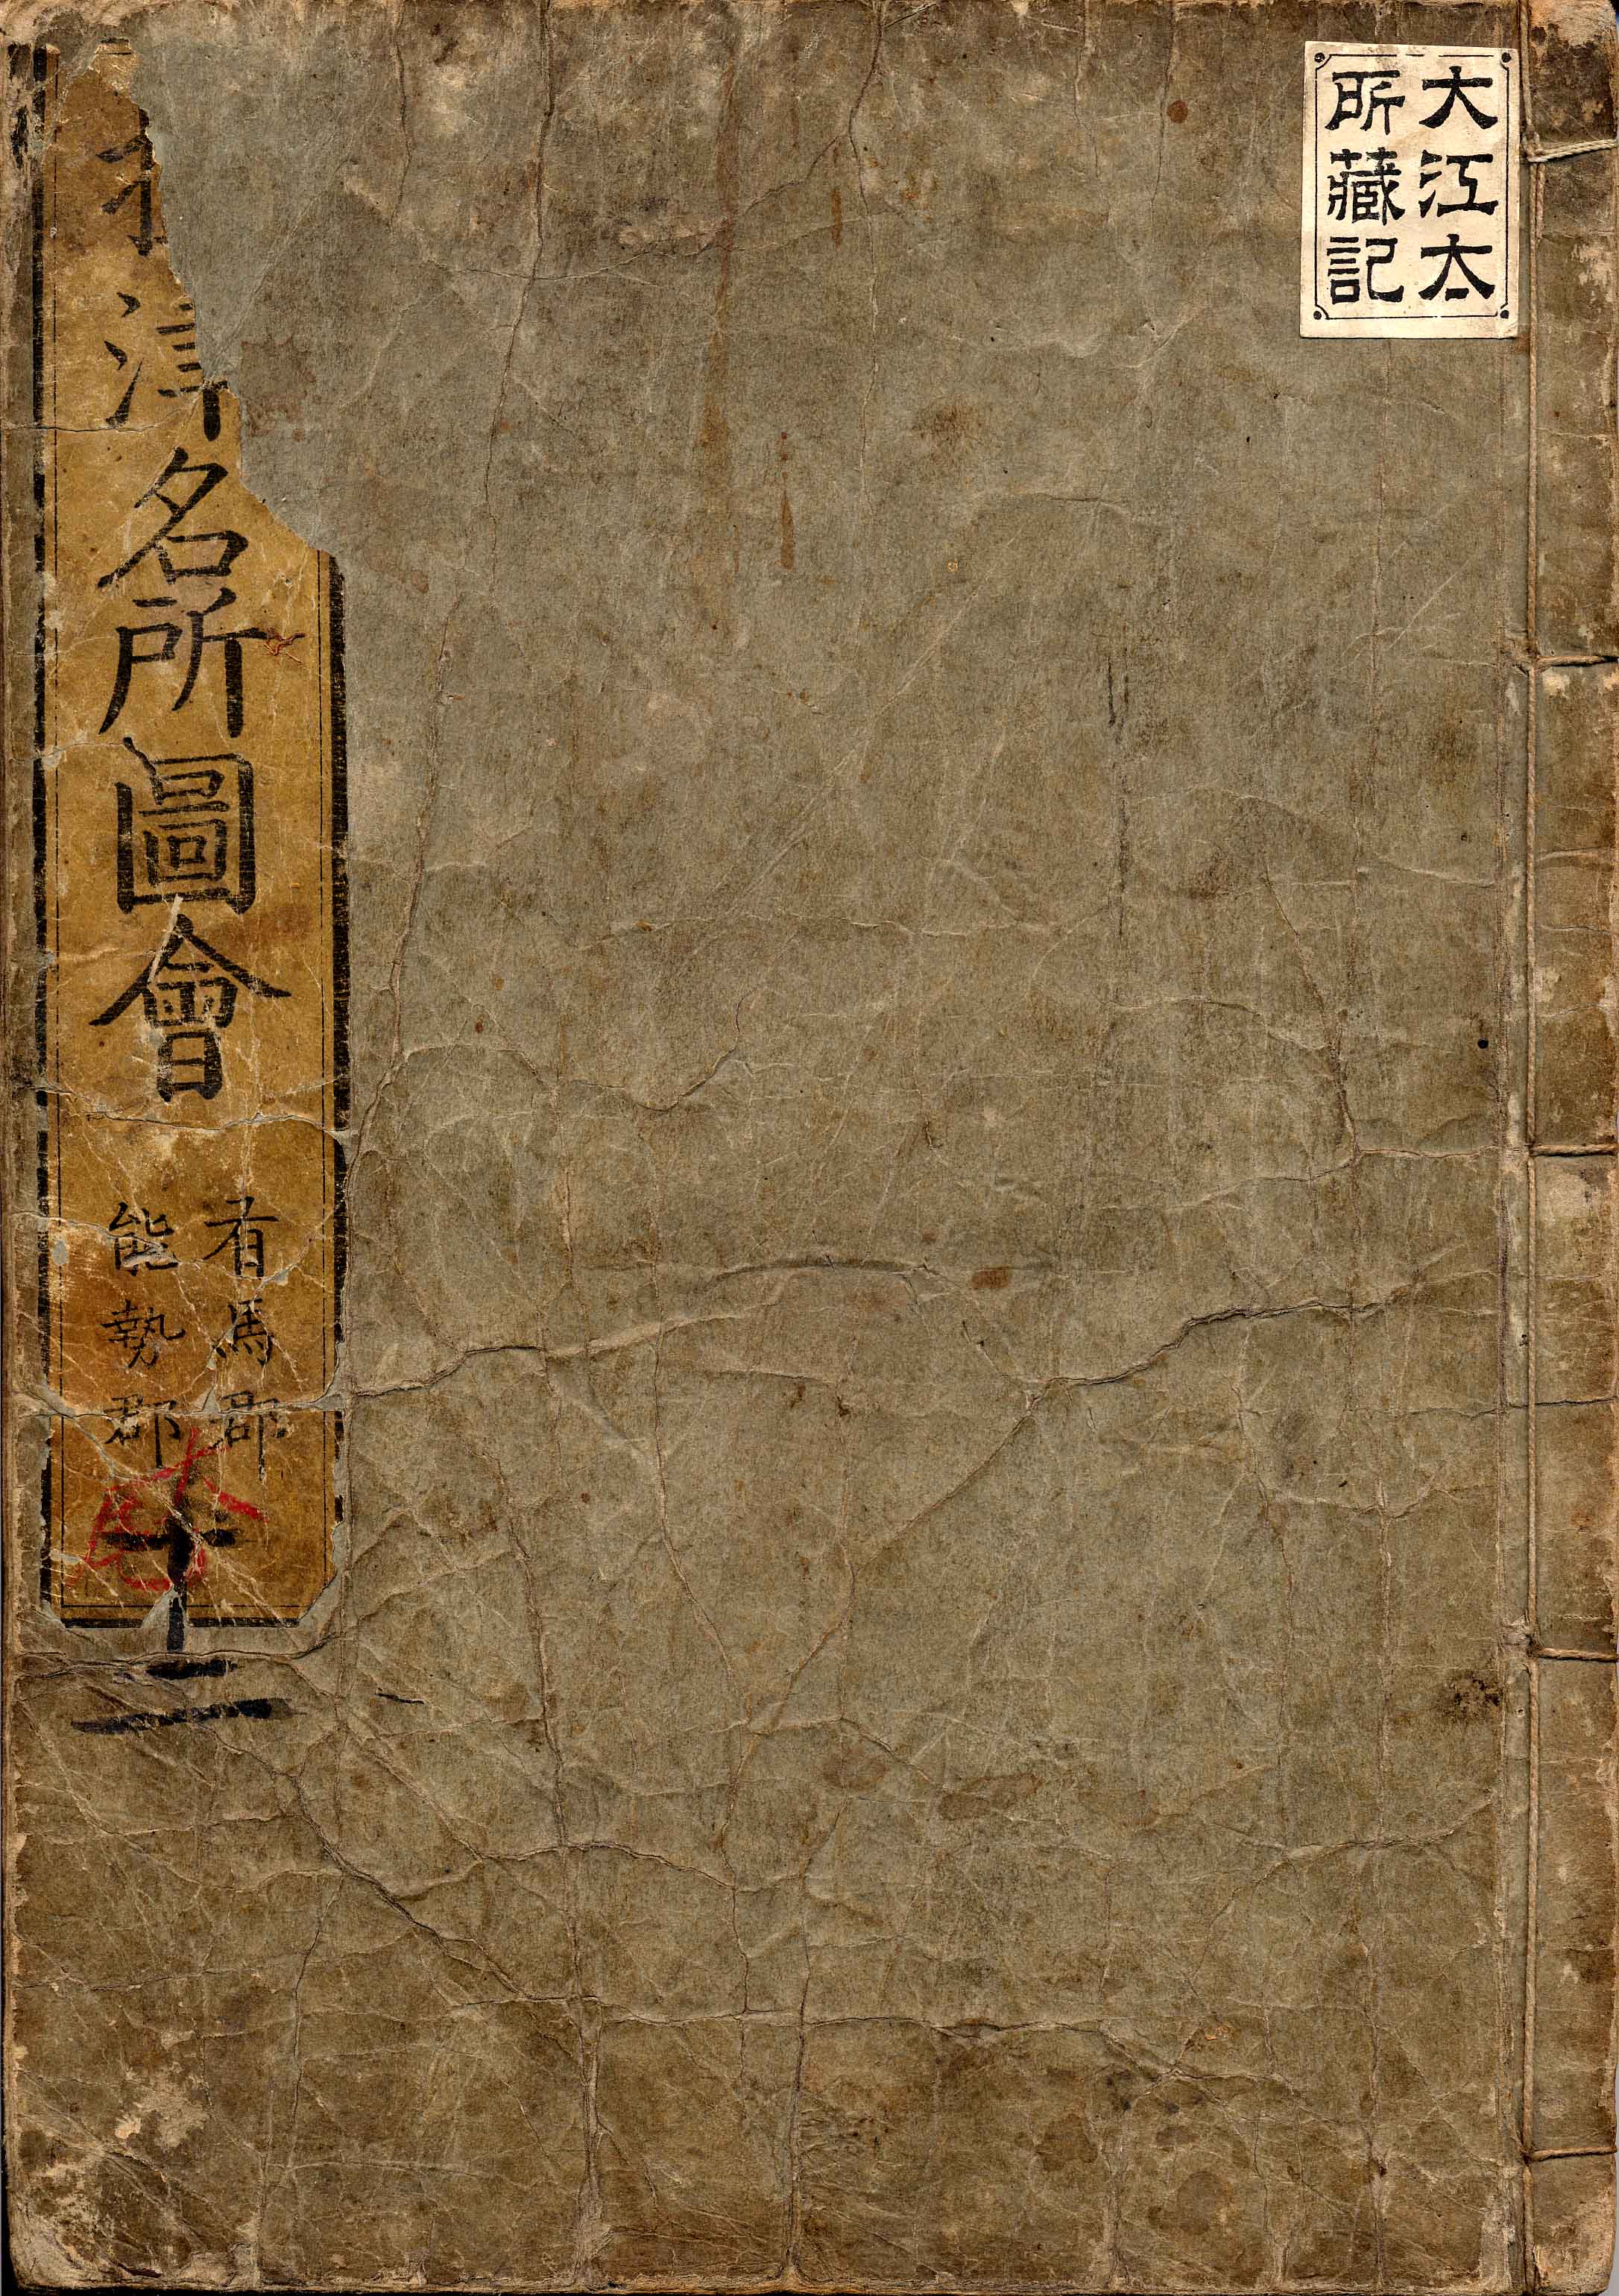 大江太
所藏記
津名所圖會
有馬郡
能勢郡
十二